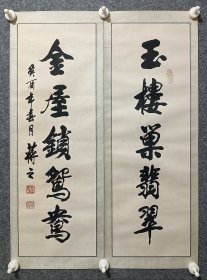 玉樓巢翡翠
金屋鎖鴛鴦
癸酉年春月